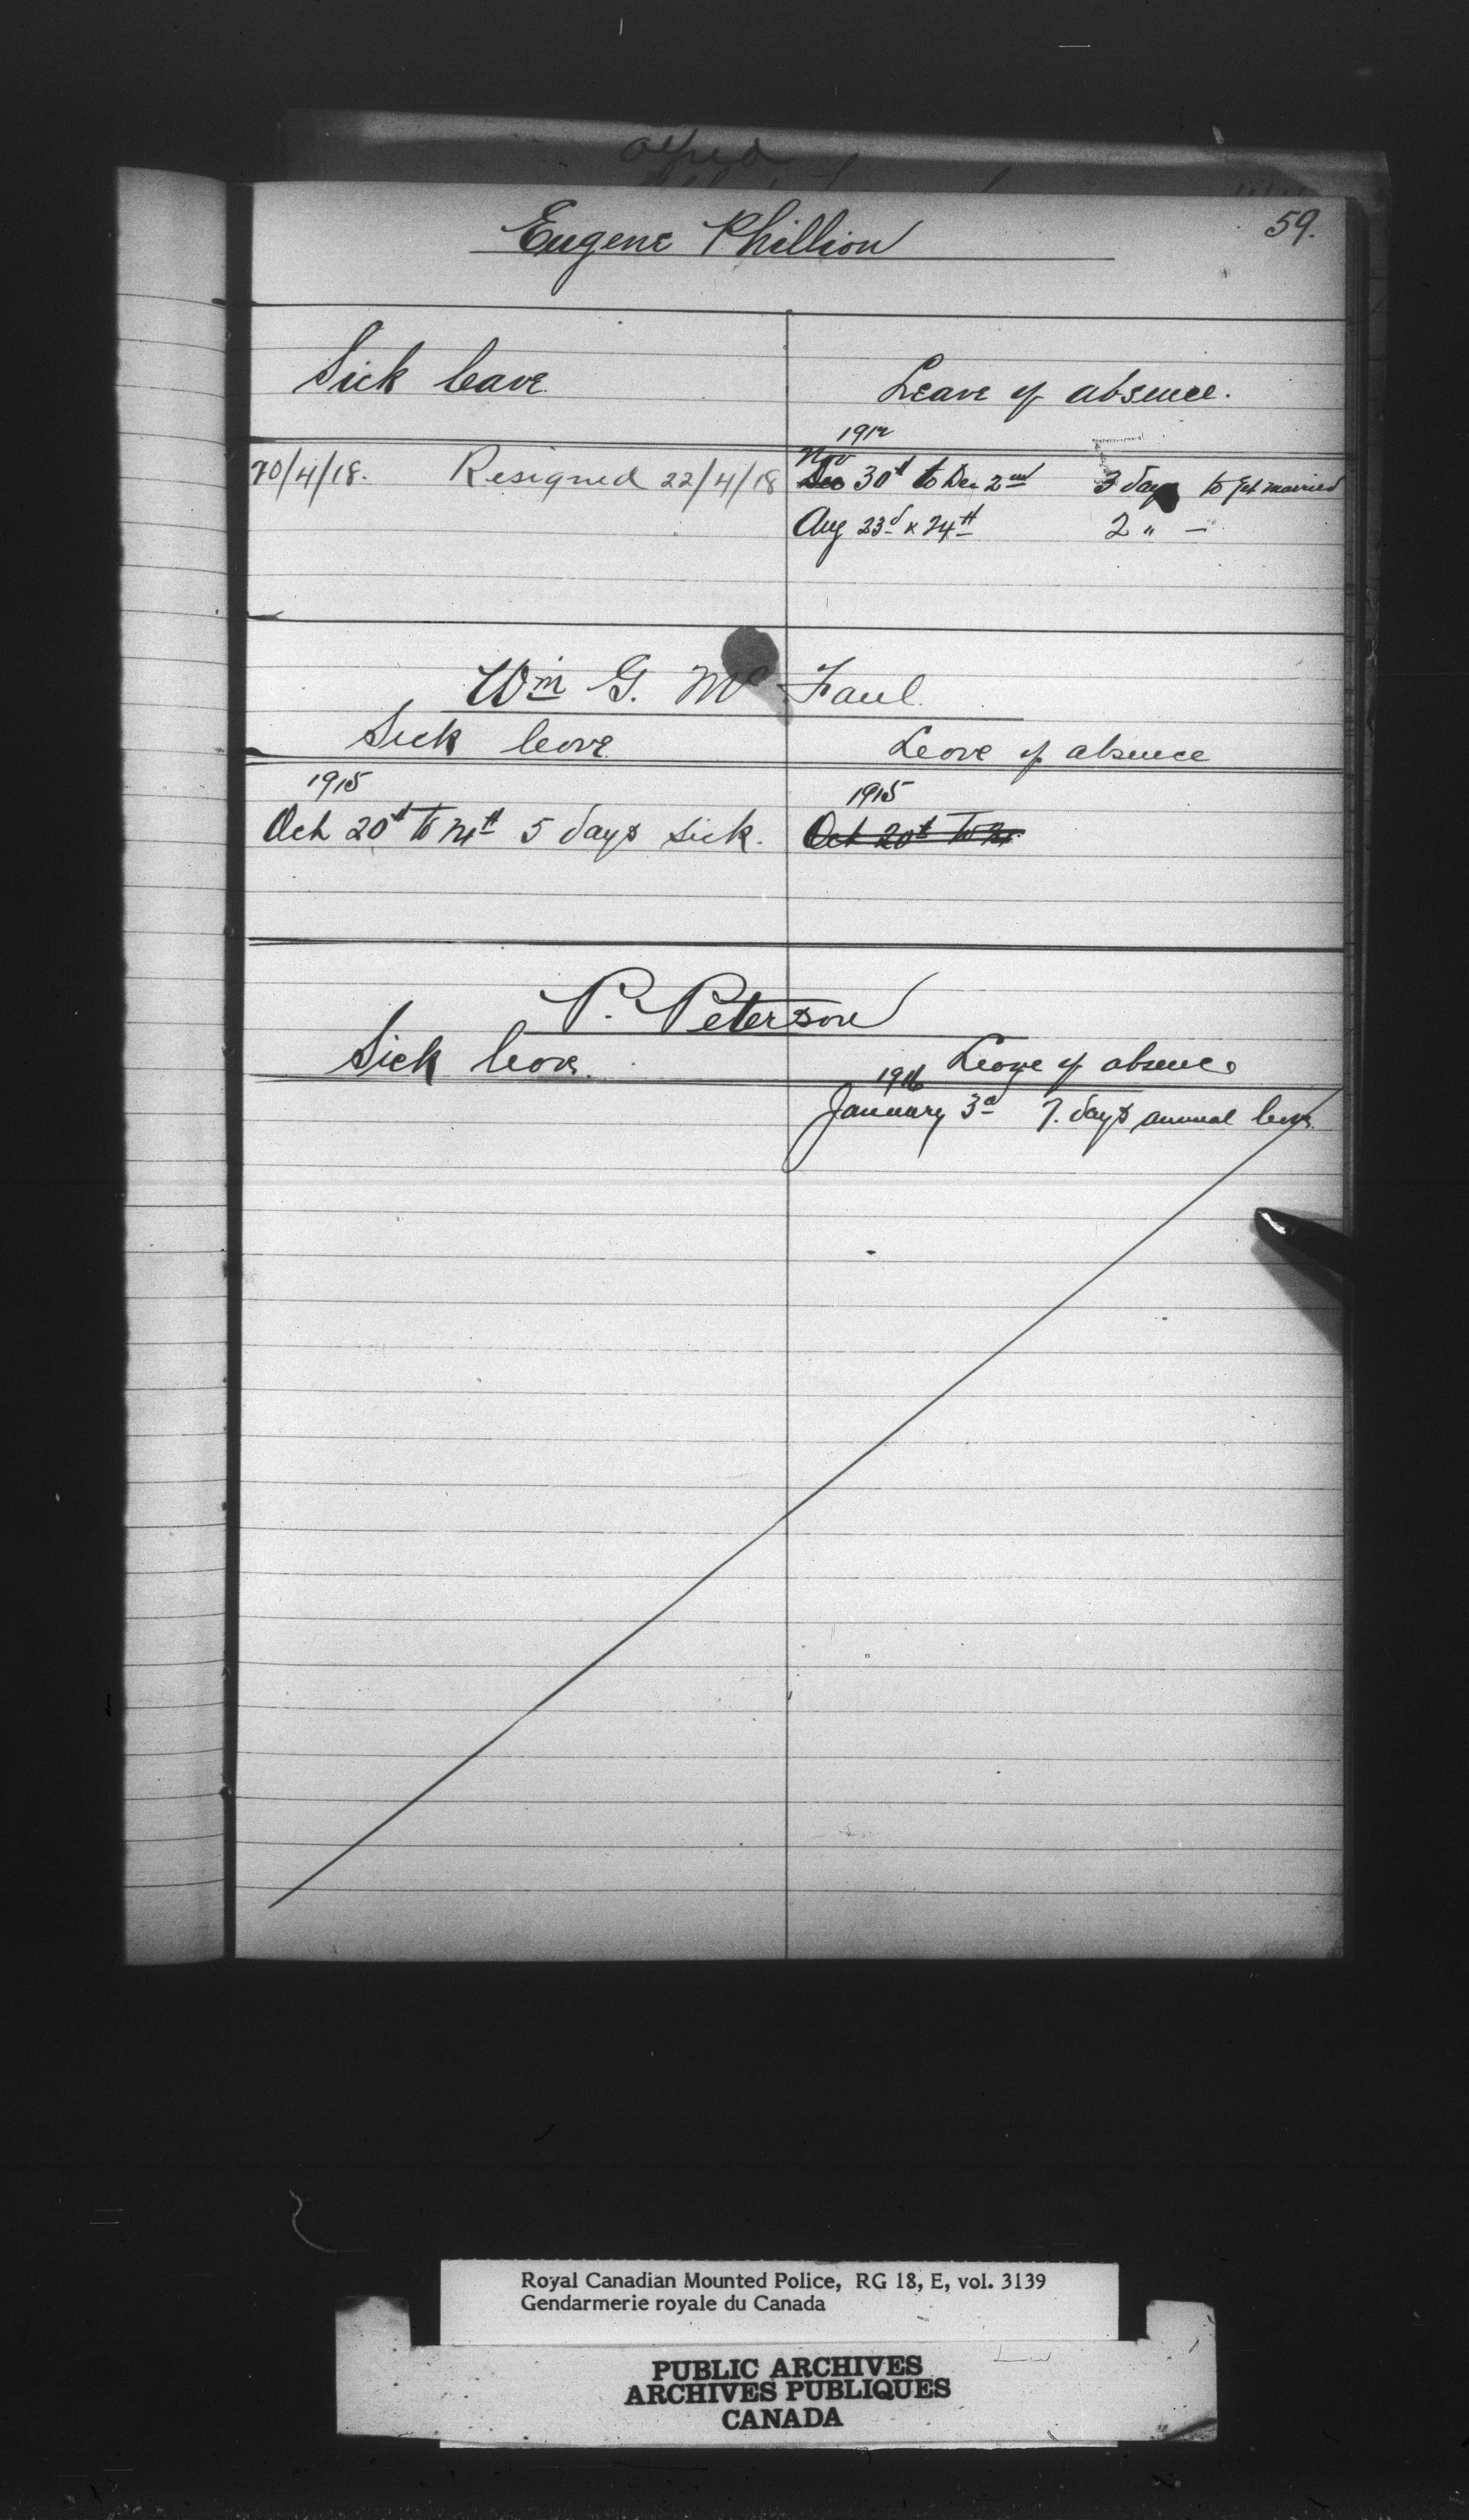 59.
Eugene Phillion
Sick leave
Leave of absence.
1912
20/4/18. Resigned 22/4/18
Nov
Dec 30th to Dec 2nd 3 days to get married
Aug 23d & 24th 2 " —
Wm G. Mc Faul.
Sick leave
Leave of absence
1915
Oct 20th to 24th 5 days sick.
1915
Oct 20th to 24
P. Peterson
Sick leave.
Leave of absence
1916
January 3d 7. days annual leave.
Royal Canadian Mounted Police, RG 18, E, vol. 3139
Gendarmerie royale du Canada
PUBLIC ARCHIVES
ARCHIVES PUBLIQUES
CANADA